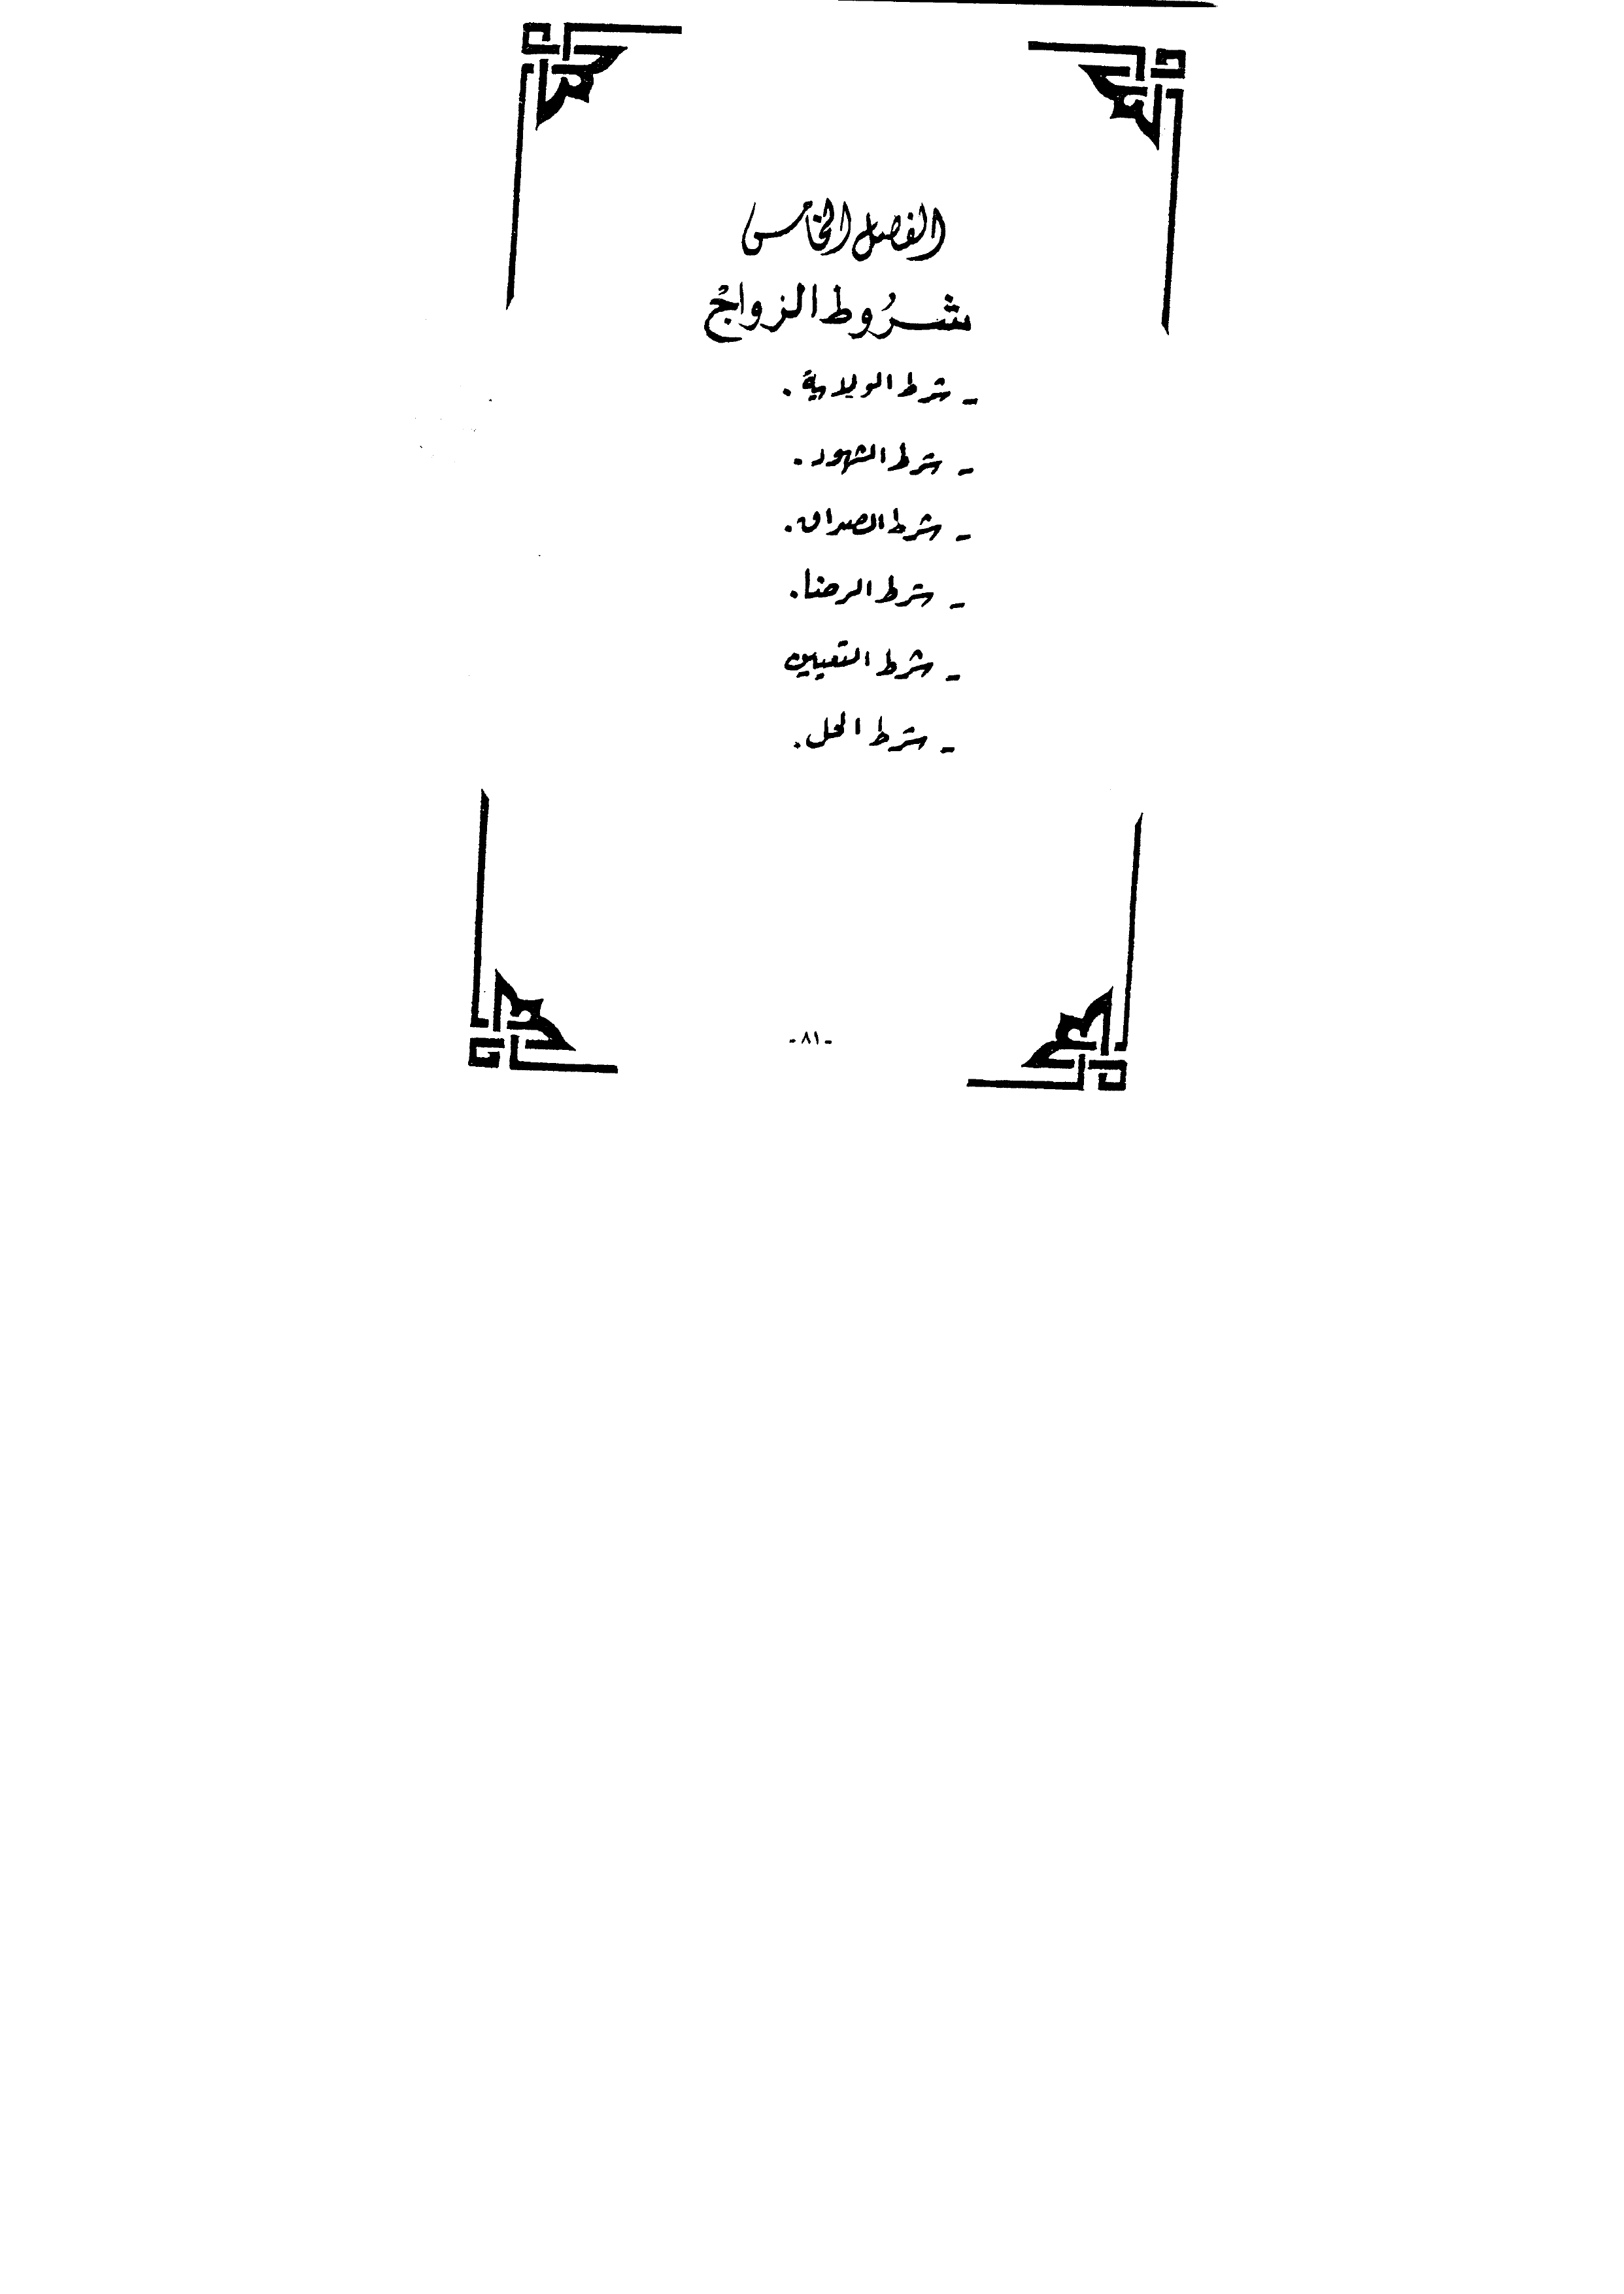 الفصل الخامس
شرُوط الزواج
- شرط الولاية.
- شرط الشهود.
- شرط الصداق.
- شرط الرضا.
- شرط التعيين
- شرط الحل.
-٨١-